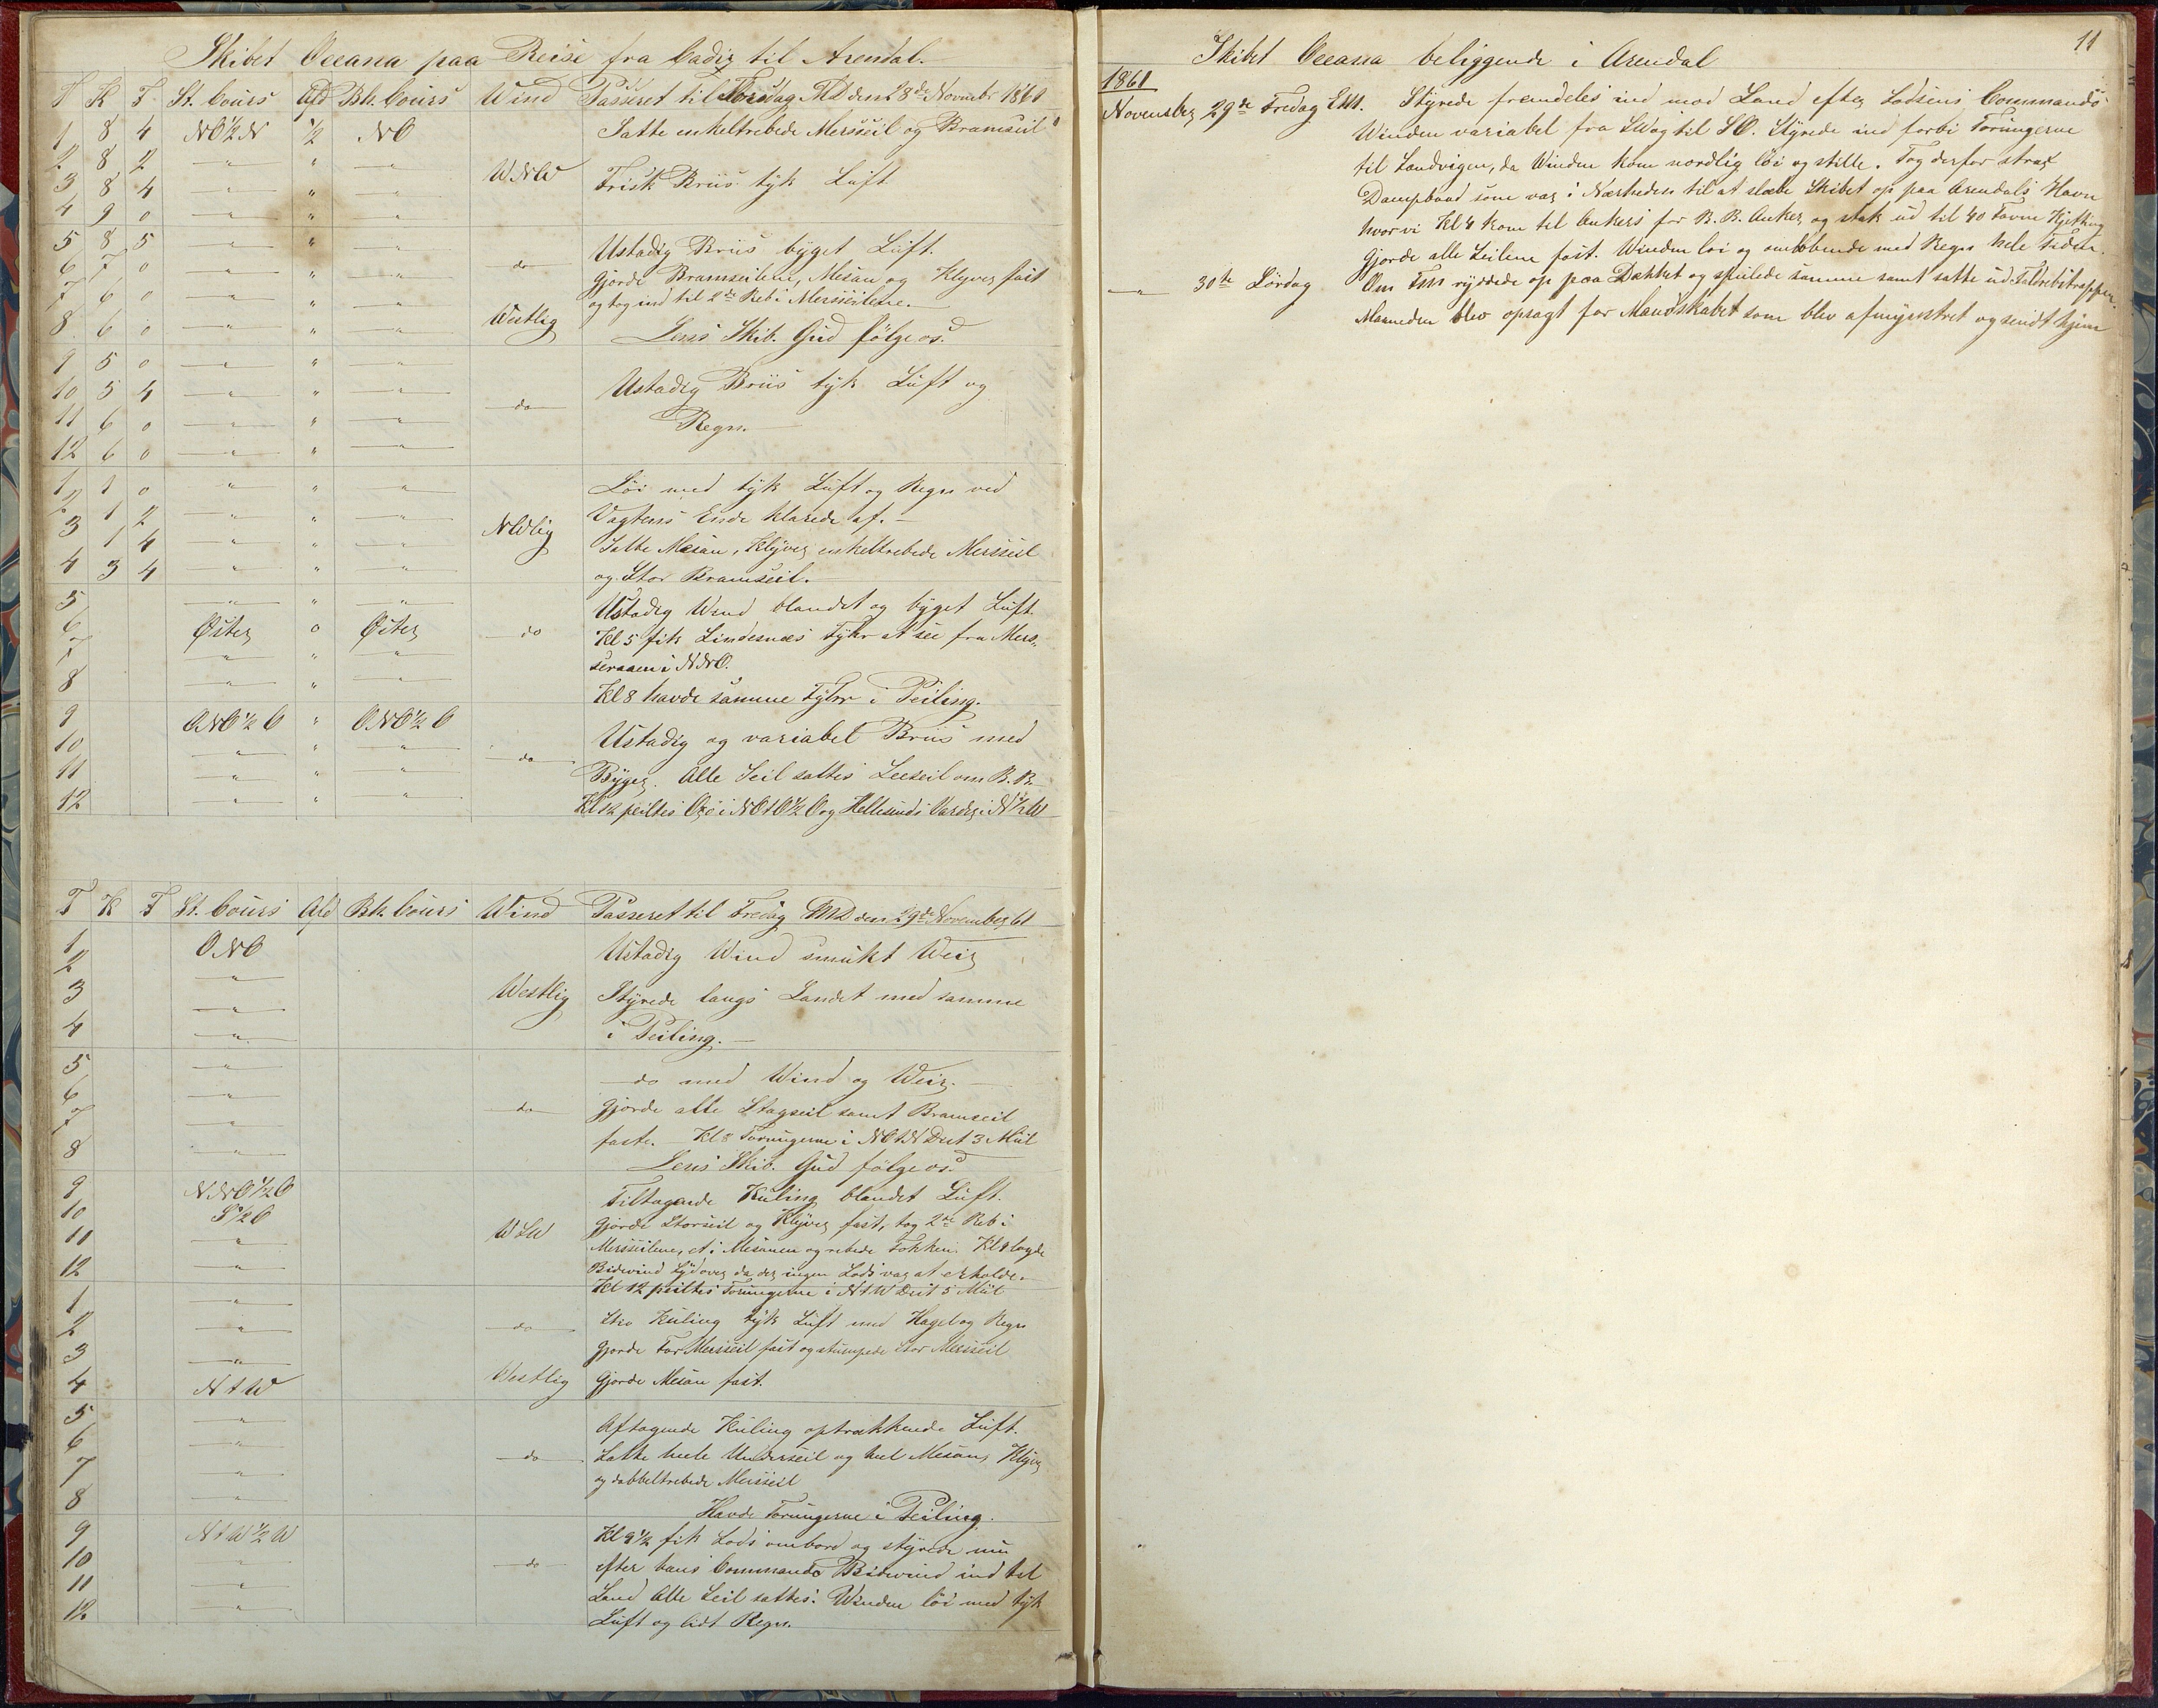 Skibet Oceana paa Reise fra Cadiz til Arendal.
T K F St. Cours Afd Bk. Cours Wind Passeret til Torsdag MD den 28de Novembr 1861
1 8 4 NO½N ½ NO Satte enkeltrebede Mersseil og Bramseil
2 8 2 " " "
3 8 4 " " " WNW Frisk Briis tyk Luft
4 9 0 " " "
5 8 5 " " " Ustadig Briis byget Luft.
6 7 0 " " " do Gjorde Bramseilene, Mesan og Klyver fast
7 6 0 " " " og tog ind til 2det Reb i Mersseilene.
8 6 0 " " " Westlig Lens Skib. Gud følge os.
9 5 0 " " "
10 5 4 " " " do Ustadig Briis tyk Luft og
11 6 0 " " " Regn.
12 6 0 " " "
1 1 0 " " " Löi med tyk Luft og Regn ved
2 1 2 " " " Vagtens Ende klarede af. –
3 1 4 " " " NWlig Satte Mesan, Klyver enkeltrebede Mersseil
4 3 4 " " " og Stor Bramseil.
5 " " " Ustadig Wind blandet og byget Luft.
6 Øster 0 Øster do Kl 5 fik Lindesnæs Fyhr at see fra Mers-
7 " " " seraaen i NNO.
8 " " " Kl 8 havde samme Fyhr i Peiling.
9 ONO½O " ONO½O Ustadig og variabel Briis med
10 " " " do
11 " " " Byger. Alle Seil sattes Leeseil om B.B.
12 " " " Kl 12 peiltes Oxö i NOtO½O og Hellesunds Varder i N½W
T K F St. Cours Afd Bk. Cours Wind Passeret til Fredag MD den 29de November 61
1 ONO Ustadig Wind smukt Weir
2 "
3 " Westlig Styrede langs Landet med samme
4 " i Peiling. –
5 " do med Wind og Weir. –
6 " do Gjorde alle Stagseil samt Bramseil
7 " faste. – Kl 8 Torungerne i NOtN Dist 3 Miil
8 " Lens Skib. Gud følge os.
9 NNO½O Tiltagende Kuling blandet Luft.
10 S½O Gjorde Storseil og Klyver fast, tog 2det Reb i
11 " WSW Mersseilene, et i Mesanen og rebede Fokken. Kl 9 lagde
12 " Bidevind Sydover da der ingen Lods var at erholde.
Kl 12 peiltes Torungerne i NtW Dist 5 Miil
1 " Stiv Kuling tyk Luft med Hagel og Regn
2 " do
3 " Gjorde For Mersseil fast og stumpede Stor Mersseil
4 NtW Westlig Gjorde Mesan fast.
5 " Aftagende Kuling optrækkende Luft.
6 " do Satte hele Underseil og heel Mesan, Klyver
7 " og dobbeltrebede Mersseil
8 " Havde Torungerne i Peiling.
9 NtW½W Kl 8½ fik Lods ombord og styrede nu
10 " do efter hans Commando Bidevind ind til
11 " Land Alle Seil sattes. Winden löi med tyk
12 " Luft og lidt Regn.
11
Skibet Oceana beliggende i Arendal
1861
November 29de Fredag EM. Styrede fremdeles ind mod Land efter Lodsens Commando
Winden variabel fra SW og til SO. Styrede ind forbi Torungerne
til Sandvigen, da Winden kom nordlig löi og stille. Tog derfor strax
Dampbaad som var i Nærheden til at slæbe Skibet op paa Arendals Havn
hvor vi Kl 4 kom til Ankers for B.B. Anker og stak ud til 40 Favne Kjetting
Gjorde alle Seilene fast. Winden löi og omlöbende med Regn hele Tiden.
" 30te Lördag Om Fm ryddede op paa Dækket og spulede samme samt satte ud Faldrebstrappen.
Maaneden blev opsagt for Mandskabet som blev afmynstret og sendt hjem